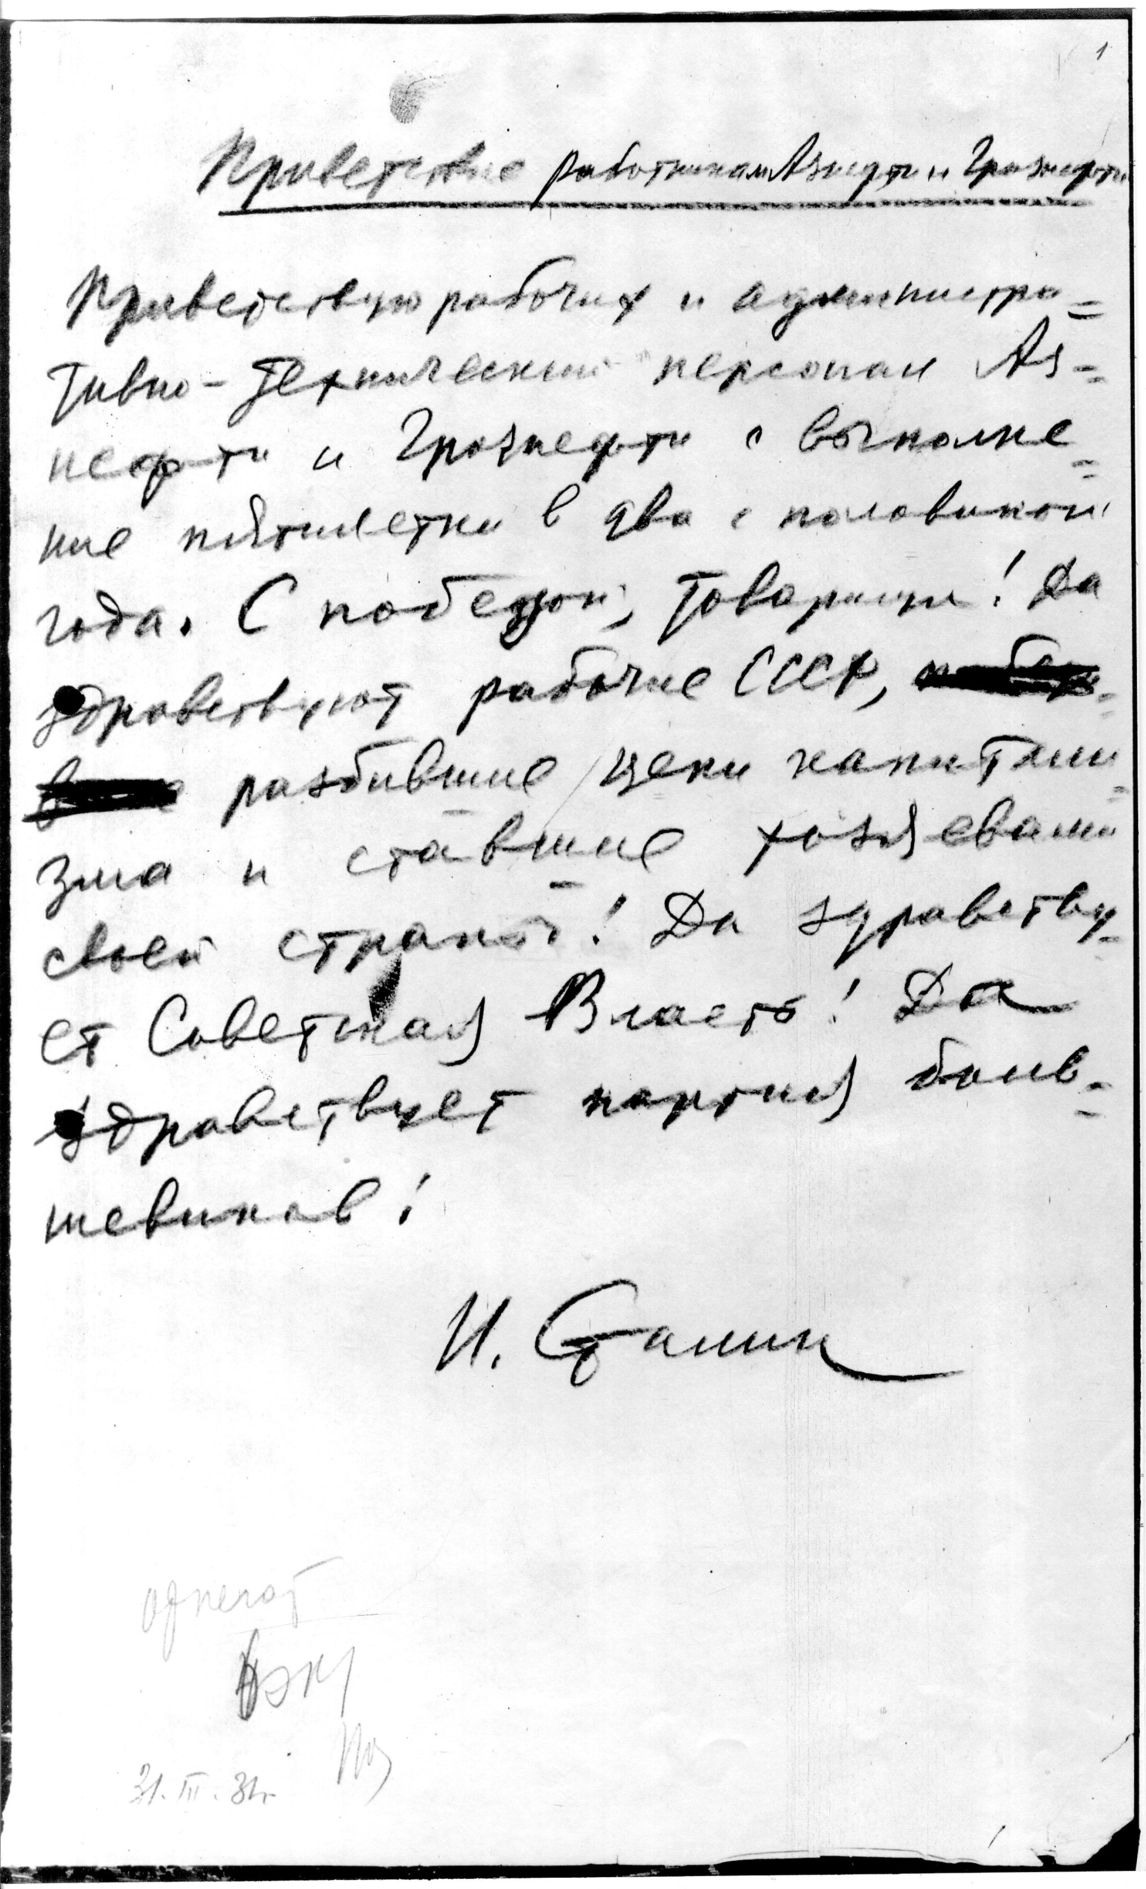 1
Приветствие работникам Азнефти и Грознефти
Приветствую рабочих и администра=
тивно-технический персонал Аз=
нефти и Грознефти с выполне=
ние пятилетки в два с половиной
года. С победой, товарищи! Да
здравствуют рабочие СССР,
разбившие цепи капитали=
зма и ставшие хозяевами
своей страной! Да здравству=
ет Советская Власть! Да
здравствует партия боль=
шевиков!
И. Сталин
31.III.31г.